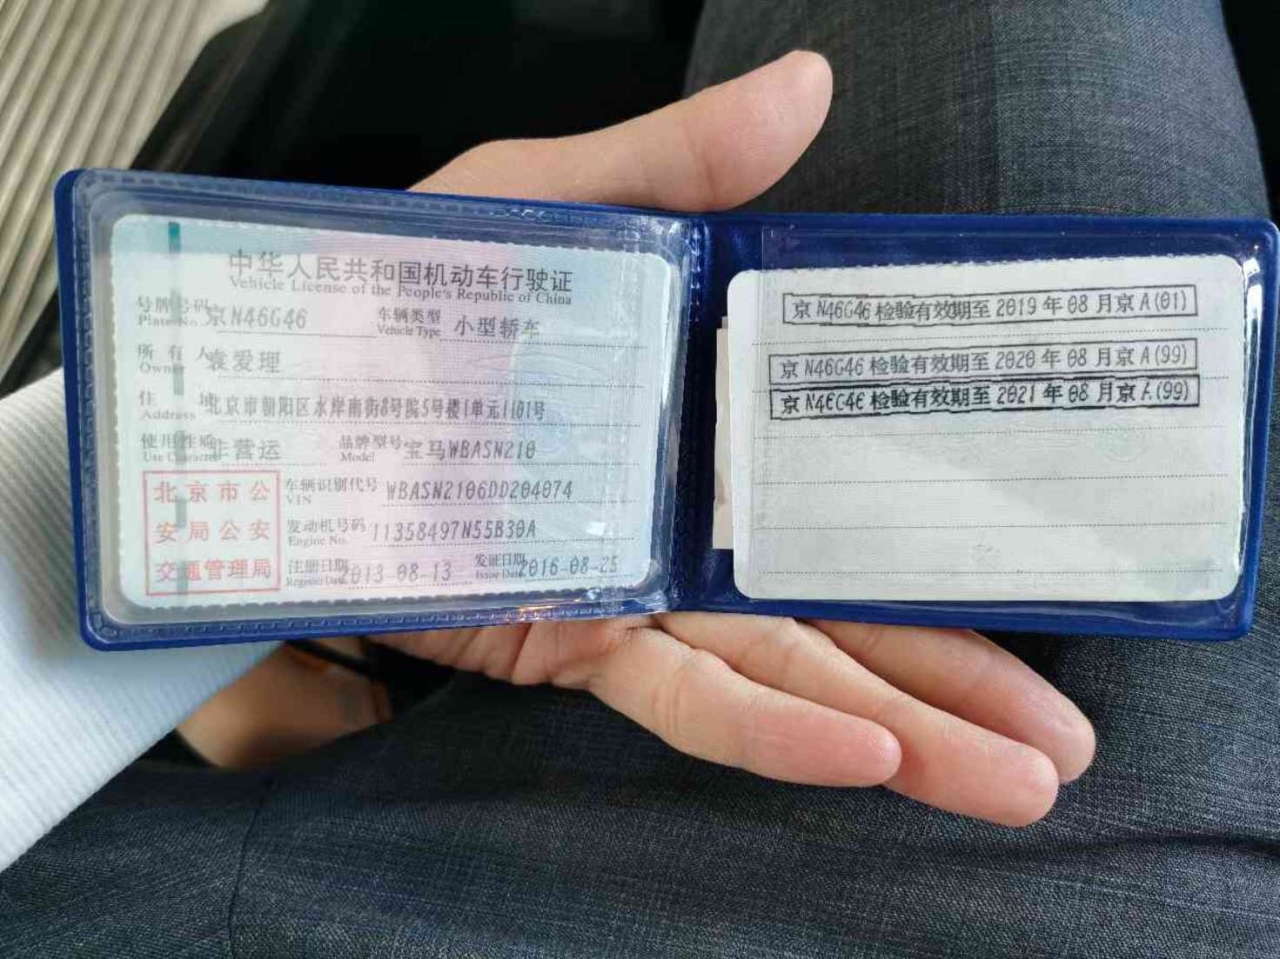 中华人民共和国机动车行驶证
Vehicle License of the People's Republic of China
号牌号码 京N46G46 车辆类型 小型轿车
Plate No. Vehicle Type
所有人 袁爱理
Owner
住址 北京市朝阳区水岸南街8号院5号楼1单元1101号
Address
使用性质 非营运 品牌型号 宝马WBASN210
Use Character Model
北京市公安局公安交通管理局
车辆识别代号 WBASN2106DD204074
VIN
发动机号码 11358497N55B30A
Engine No.
注册日期 2013-08-13 发证日期 2016-08-25
Register Date Issue Date
京N46G46检验有效期至2019年08月京A(01)
京N46G46检验有效期至2020年08月京A(99)
京N46G46检验有效期至2021年08月京A(99)